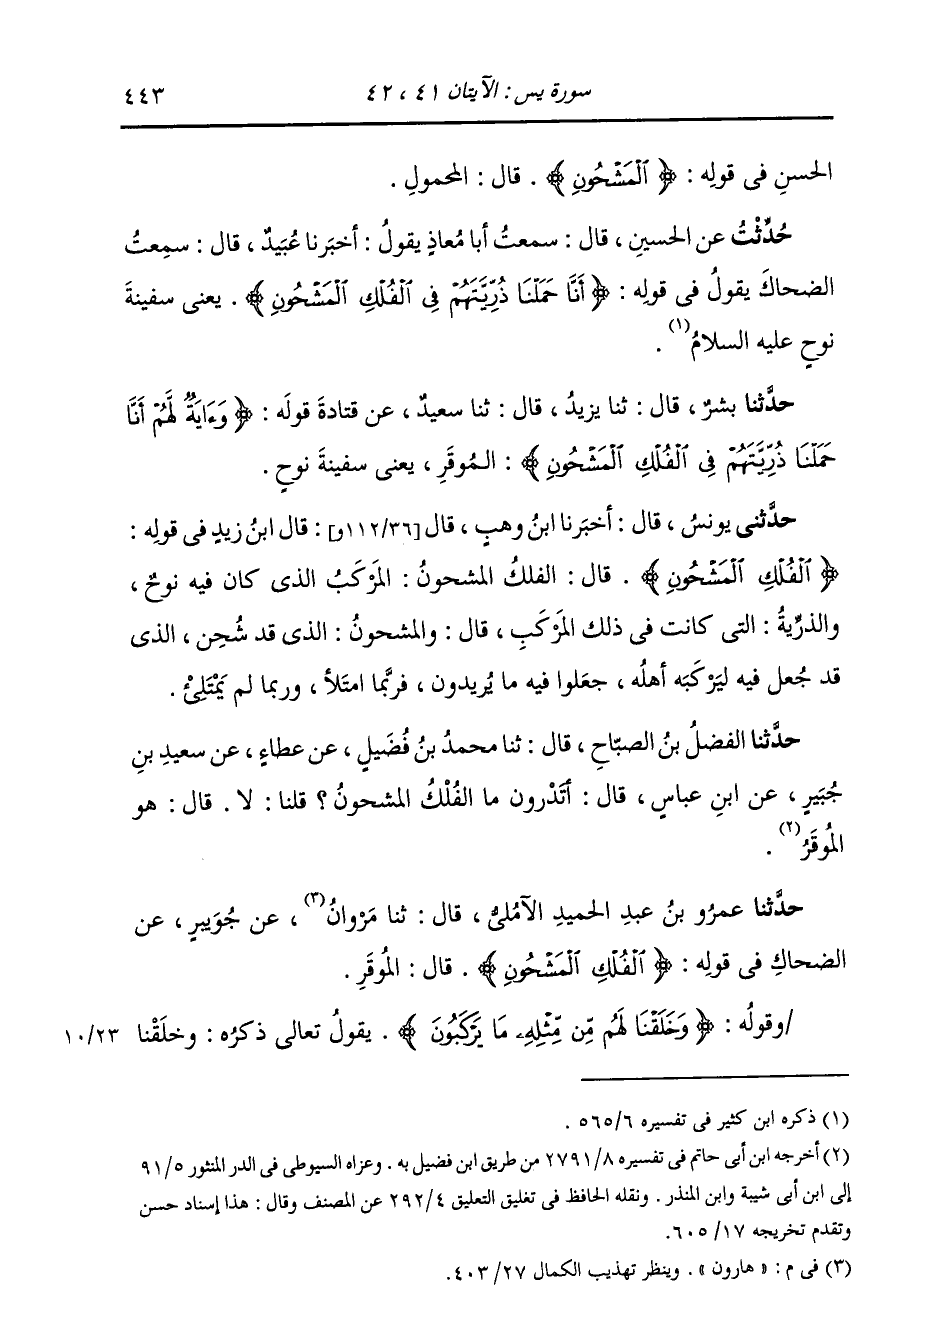 سورة يس : الآيتان ٤١ ، ٤٢ ٤٤٣
الحسنِ فى قولِه : ﴿ ٱلْمَشْحُونِ ﴾ . قال : المحمولِ .
حُدِّثْتُ عن الحسينِ ، قال : سمعتُ أبا مُعاذٍ يقولُ : أخبَرنا عُبَيدٌ ، قال : سمِعتُ
الضحاكَ يقولُ فى قولِه : ﴿ أَنَّا حَمَلْنَا ذُرِّيَّتَهُمْ فِى ٱلْفُلْكِ ٱلْمَشْحُونِ ﴾ . يعنى سفينةَ
نوحٍ عليه السلامُ(١) .
حدَّثنا بشرٌ ، قال : ثنا يزيدُ ، قال : ثنا سعيدٌ ، عن قتادةَ قولَه : ﴿ وَءَايَةٌ لَّهُمْ أَنَّا
حَمَلْنَا ذُرِّيَّتَهُمْ فِى ٱلْفُلْكِ ٱلْمَشْحُونِ ﴾ : المُوقَرِ ، يعنى سفينةَ نوحٍ .
حدَّثنى يونسُ ، قال : أخبَرنا ابنُ وهبٍ ، قال [١١٢/٣٦و] : قال ابنُ زيدٍ فى قولِه :
﴿ ٱلْفُلْكِ ٱلْمَشْحُونِ ﴾ . قال : الفلكُ المشحونُ : المَرْكَبُ الذى كان فيه نوحٌ ،
والذرِّيةُ : التى كانت فى ذلك المَرْكَبِ ، قال : والمشحونُ : الذى قد شُحِن ، الذى
قد جُعل فيه ليَرْكَبَه أهلُه ، جعَلوا فيه ما يُريدون ، فربَّما امتَلأ ، وربما لم يَمْتَلِئْ .
حدَّثنا الفضلُ بنُ الصبّاحِ ، قال : ثنا محمدُ بنُ فُضَيلٍ ، عن عطاءٍ ، عن سعيدِ بنِ
جُبَيرٍ ، عن ابنِ عباسٍ ، قال : أتَدْرون ما الفُلْكُ المشحونُ ؟ قلنا : لا . قال : هو
المُوقَرُ(٢) .
حدَّثنا عمرُو بنُ عبدِ الحميدِ الآمُلىُّ ، قال : ثنا مَرْوانُ(٣) ، عن جُوَيبرٍ ، عن
الضحاكِ فى قولِه : ﴿ ٱلْفُلْكِ ٱلْمَشْحُونِ ﴾ . قال : المُوقَرِ .
/وقولُه : ﴿ وَخَلَقْنَا لَهُم مِّن مِّثْلِهِۦ مَا يَرْكَبُونَ ﴾ . يقولُ تعالى ذكرُه : وخلَقْنا ١٠/٢٣
(١) ذكره ابن كثير فى تفسيره ٥٦٥/٦ .
(٢) أخرجه ابن أبى حاتم فى تفسيره ٢٧٩١/٨ من طريق ابن فضيل به . وعزاه السيوطى فى الدر المنثور ٩١/٥
إلى ابن أبى شيبة وابن المنذر . ونقله الحافظ فى تغليق التعليق ٢٩٢/٤ عن المصنف وقال : هذا إسناد حسن
وتقدم تخريجه ٦٠٥/١٧.
(٣) فى م : « هارون » . وينظر تهذيب الكمال ٤٠٣/٢٧.